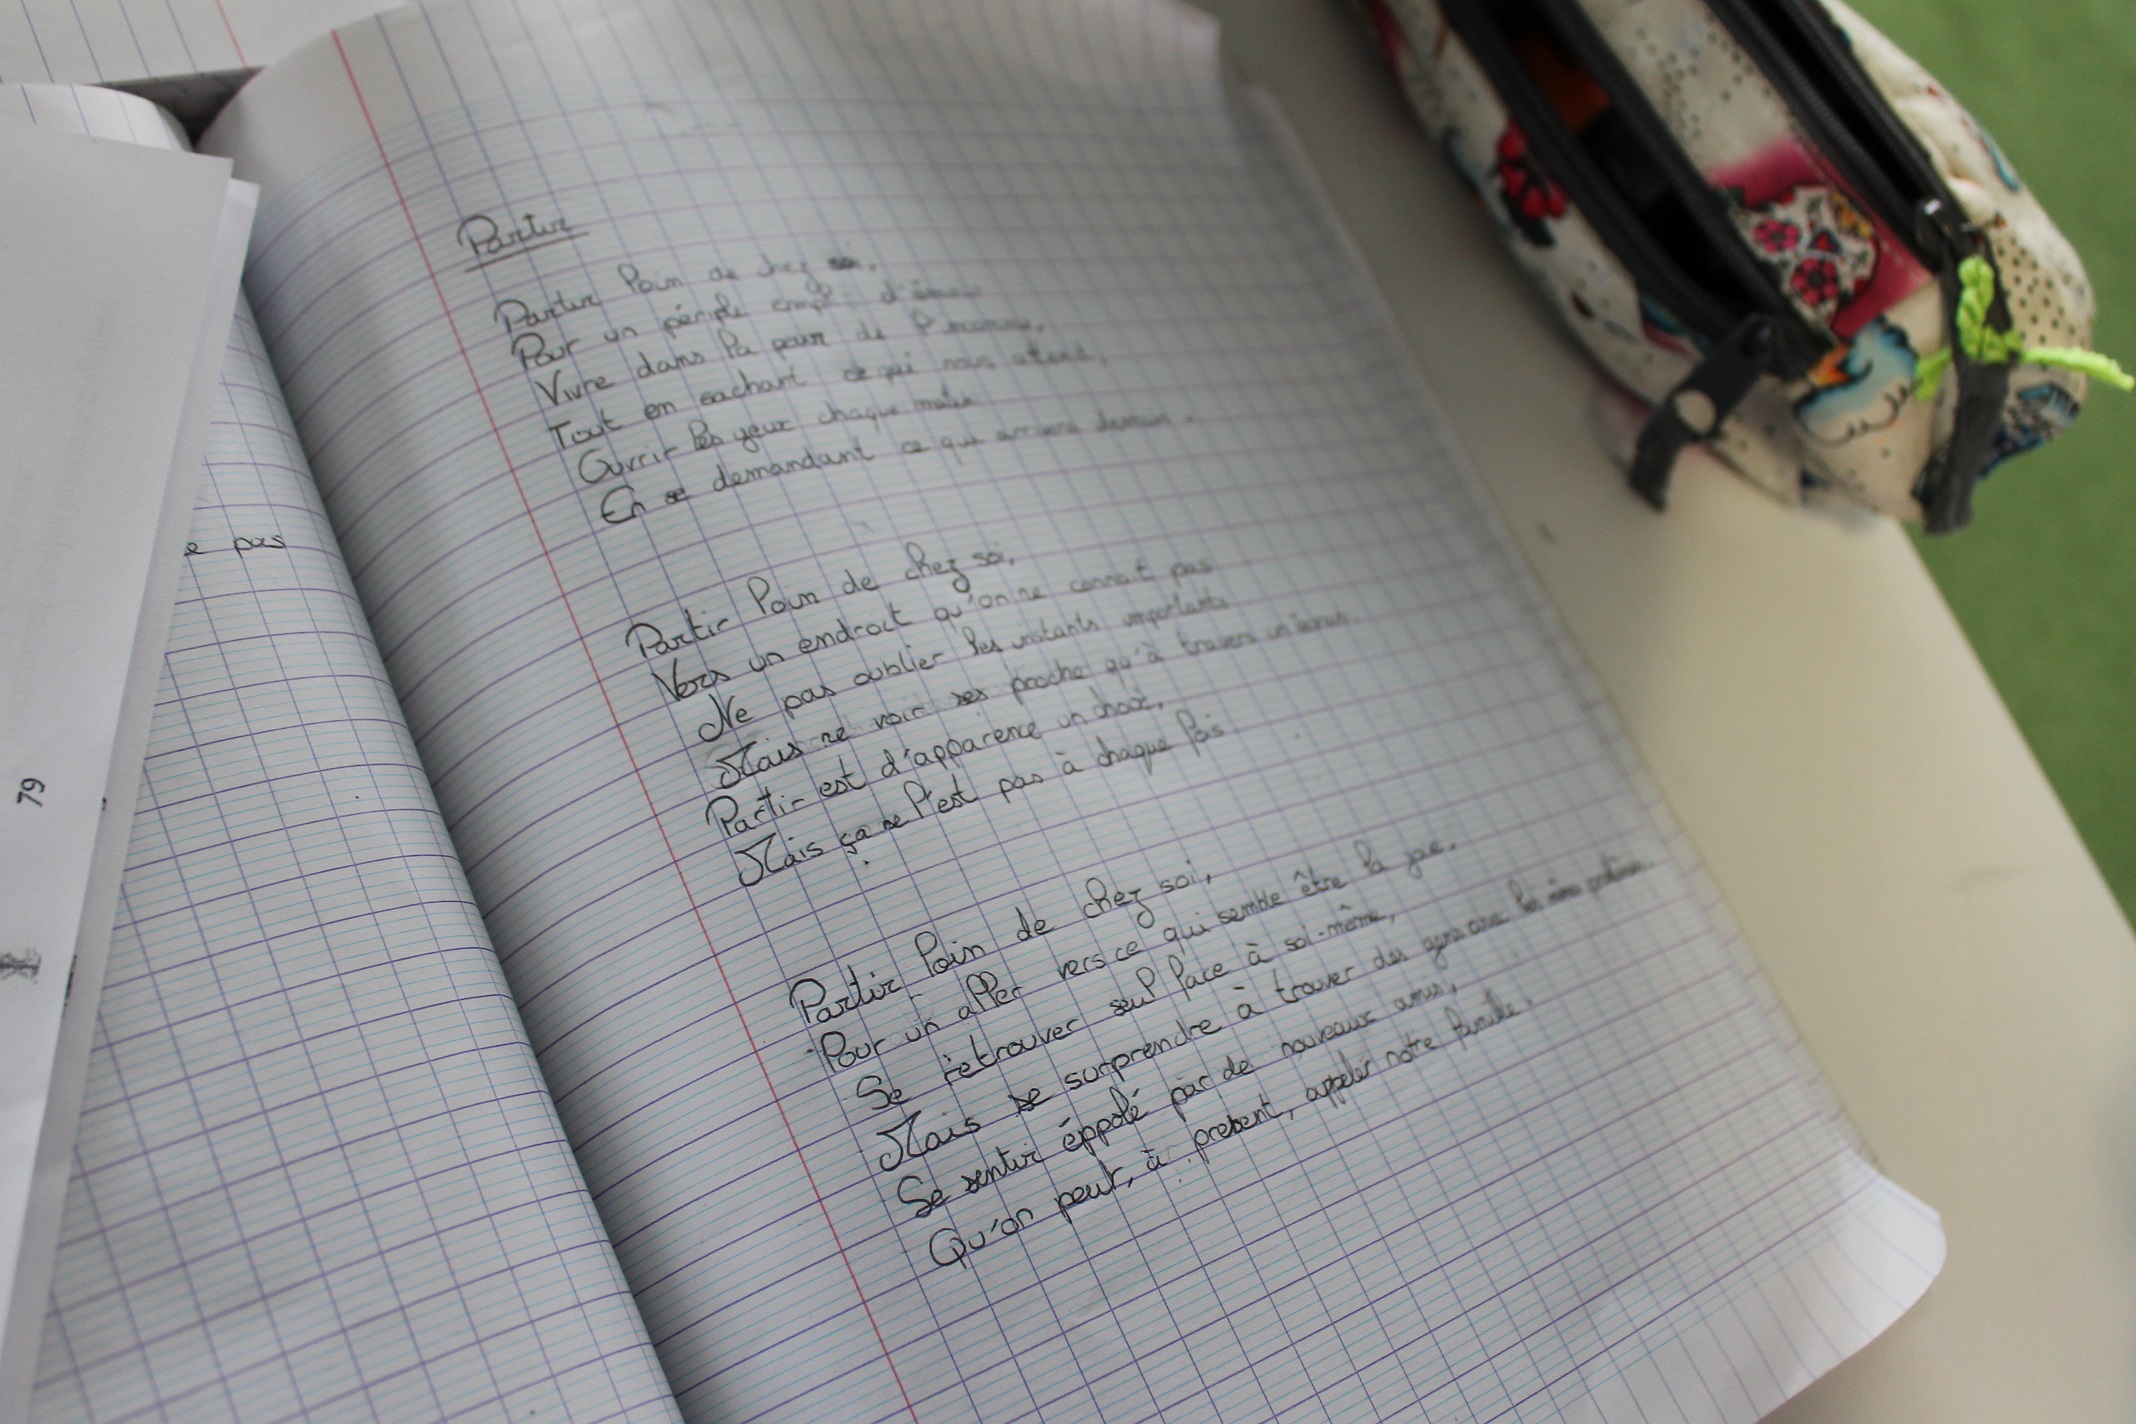 e pas
79
Partir
Partir loin de chez soi,
Pour un périple empli d'émoi
Vivre dans la peur de
Tout en sachant ce qui nous attend,
Ouvrir les yeux chaque matin
En se demandant ce qui arrivera demain.
Partir loin de chez soi,
Vers un endroit qu'on ne connait pas
Ne pas oublier les instants importants
Mais ne voir ses proche qu'à travers un écran.
Partir est d'apparence un choix,
Mais ça ne l'est pas à chaque fois
Partir loin de chez soi,
Pour un aller vers ce qui semble être la joie.
Se retrouver seul face à soi-même,
Mais se surprendre à trouver des gens avec les même
Se sentir éppolé par de nouveaux amis,
Qu'on peut, à present, appeler notre famille.